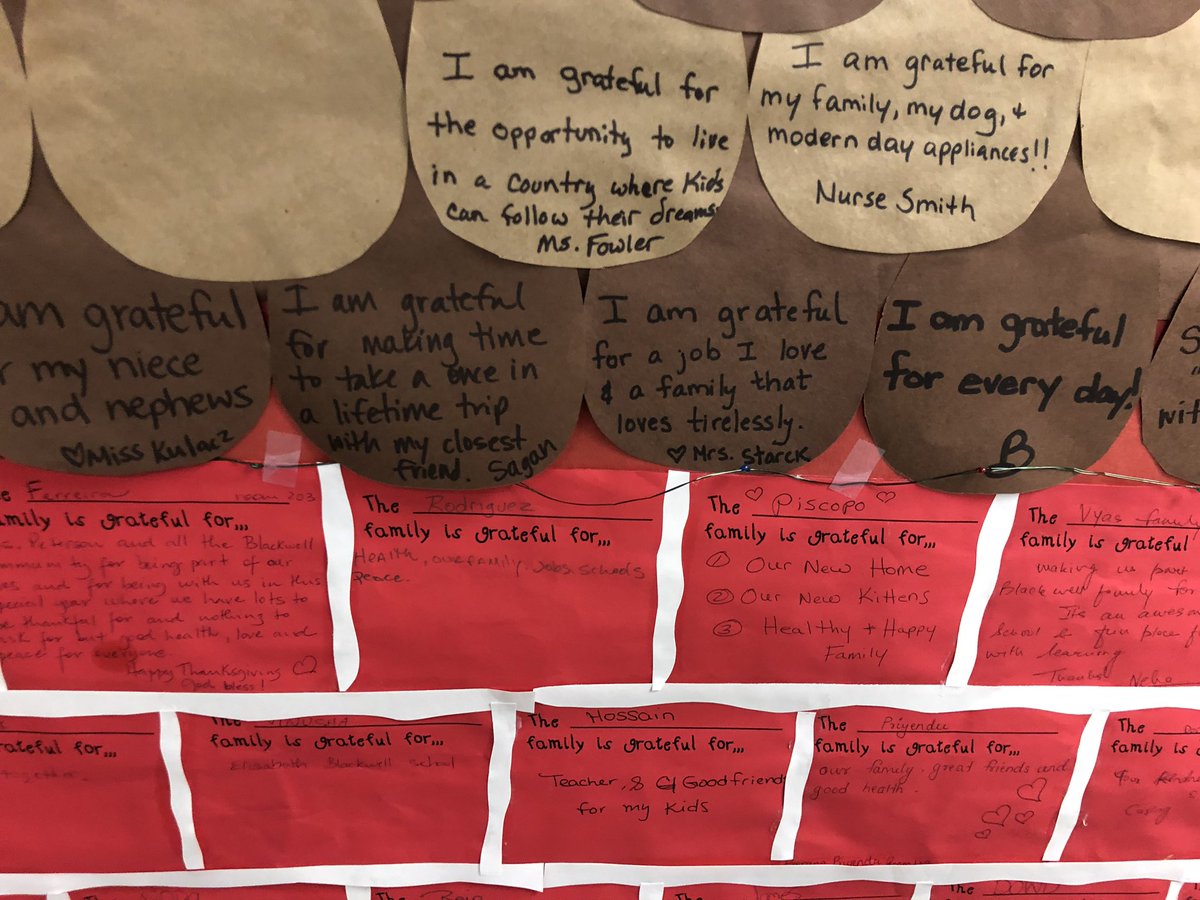 I am grateful for
the opportunity to live
in a country where kids
can follow their dreams.
Ms. Fowler
I am grateful for
my family, my dog, +
modern day appliances!!
Nurse Smith
am grateful
my niece
and nephews
♡Miss Kulacz
I am grateful
for making time
to take a once in
a lifetime trip
with my closest
friend. Sagan
I am grateful
for a job I love
& a family that
loves tirelessly.
♡ Mrs. Starck
I am grateful
for every day!
B
Ferreira room 203
family is grateful for,,,
Peterson and all the Blackwell
for being part of our
and for being with us in this
special year where we have lots to
be thankful for and nothing to
ask for but good health, love and
peace for everyone.
Happy Thanksgiving ♡
God bless!
The Rodriguez
family is grateful for,,,
Health, our family, Jobs, Schools
Peace.
The ♡ Piscopo ♡
family is grateful for,,,
① Our New Home
② Our New Kittens
③ Healthy + Happy
Family
The Vyas family
family is grateful
making us part
Blackwell family for
Its an awesome
school & fun place
with learning
Neha
grateful for,,,
together.
The
family is grateful for,,,
Elizabeth Blackwell School
The Hossain
family is grateful for,,,
Teacher, & Good friend
for my Kids
The Priyendu
family is grateful for,,,
our family. great friends and
good health.
The
family is
The
The
The DOWD